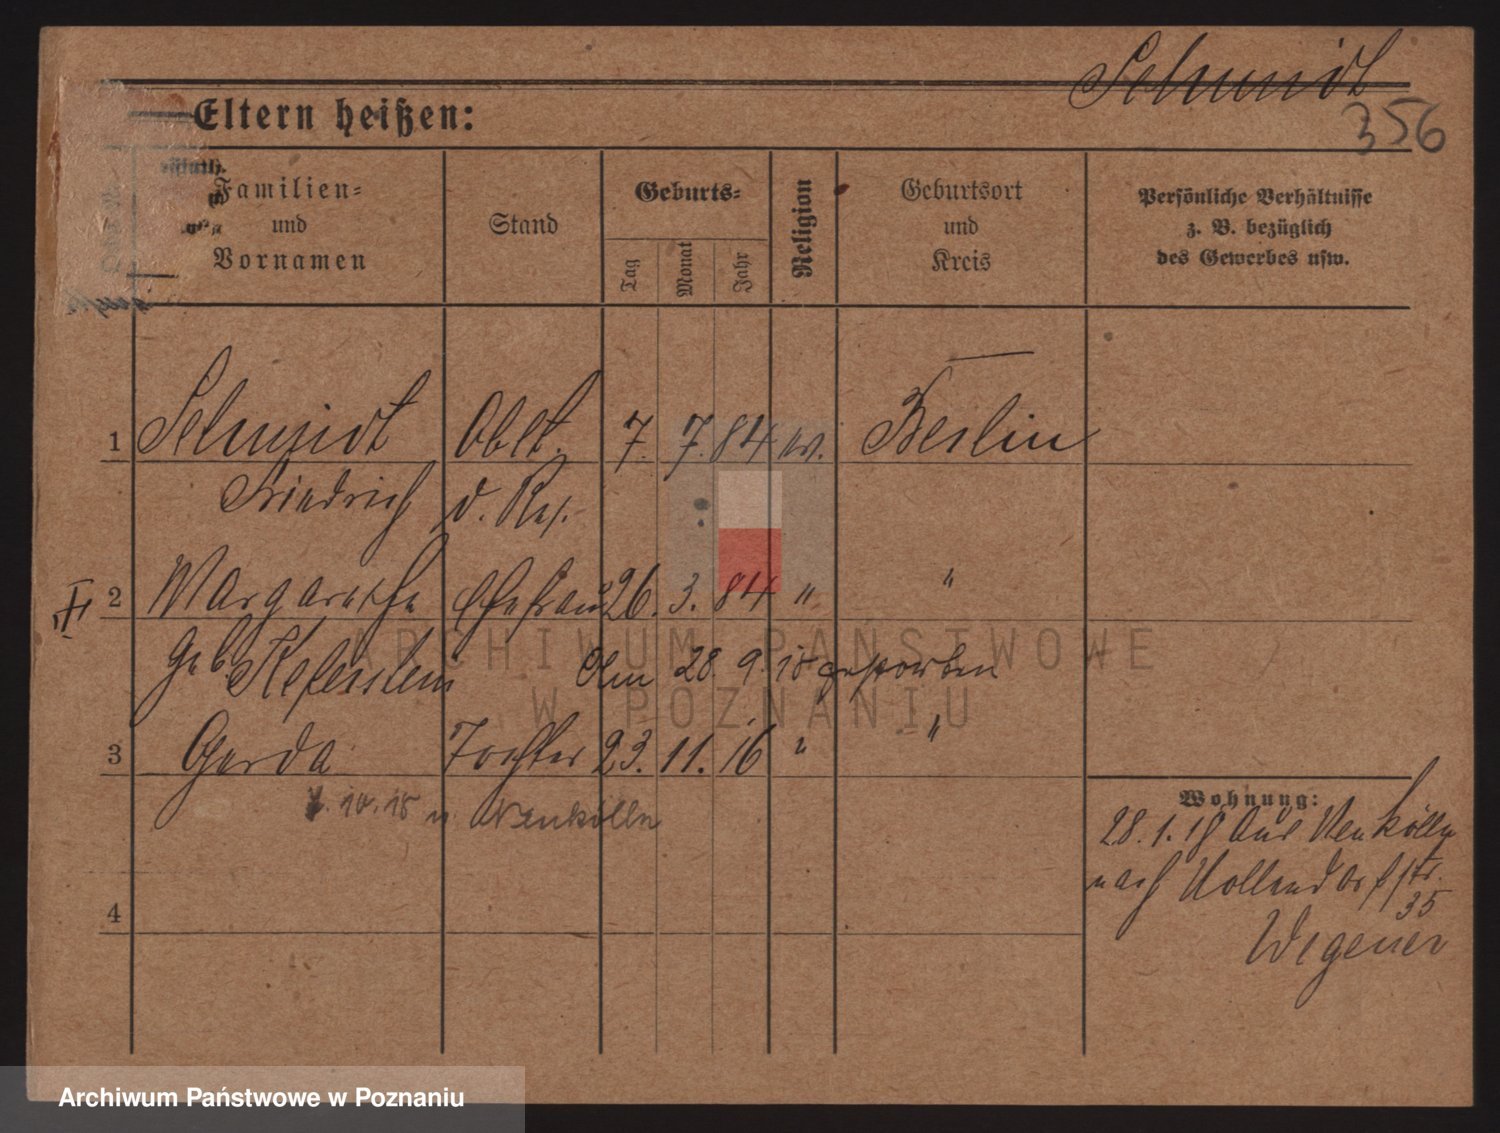 Schmidt
356
Eltern heißen:
Familien=
und
Vornamen
Stand
Geburts=
Tag
Monat
Jahr
Religion
Geburtsort
und
Kreis
Persönliche Verhältnisse
z. B. bezüglich
des Gewerbes usw.
1 Schmidt Oblt. 7. 7. 84 ev. Berlin
Friedrich d. Res.
II 2 Margarethe Ehefrau 26. 3. 84 " "
geb. Keferstein Am 28. 9. 18 gestorben
3 Gerda Tochter 23. 11. 16 " "
10. 18 n Neukölln
Wohnung:
28. 1. 18 aus Neukölln
nach Hollendorfstr.
35
Wegener
4
ARCHIWUM PAŃSTWOWE
W POZNANIU
Archiwum Państwowe w Poznaniu